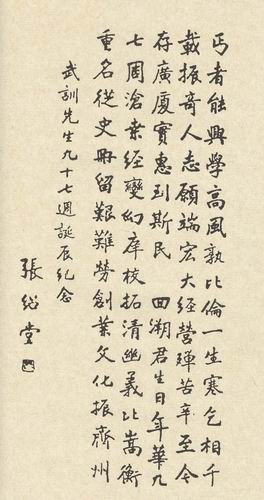 丐者能興學高風孰比倫一生寒乞相千
載振奇人志願端宏大經營殫苦辛至今
存廣厦實惠到斯民 回溯君生日年華九
七周滄桒經變幻庠校拓清幽義比嵩衡
重名從史冊留艱難勞創業文化振齊州
武訓先生九十七週誕辰纪念
張紹堂